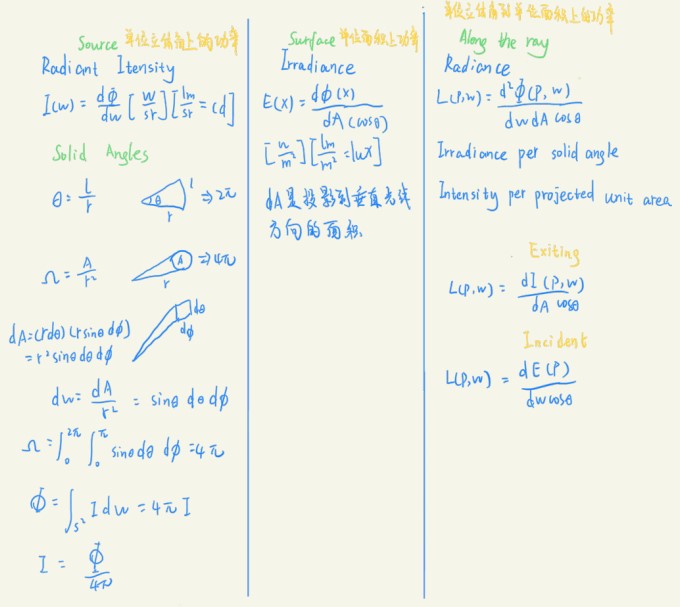 Source 单位立体角上的功率
Radiant Itensity
I(w) = dΦ/dw [W/sr] [lm/sr = cd]
Solid Angles
θ = l/r
θ l r ⇒ 2π
Ω = A/r²
A r ⇒ 4π
dA = (rdθ)(rsinθ dϕ)
= r² sinθ dθ dϕ
dθ
dϕ
dw = dA/r² = sinθ dθ dϕ
Ω = ∫₀^2π ∫₀^π sinθ dθ dϕ = 4π
Φ = ∫_S² I dw = 4π I
I = Φ/4π
Surface 单位面积上功率
Irradiance
E(x) = dϕ(x)/dA(cosθ)
[W/m²] [lm/m² = lux]
dA是投影到垂直光线
方向的面积
单位立体角到单位面积上的功率
Along the ray
Radiance
L(P,w) = d²Φ(P,w)/dwdA cosθ
Irradiance per solid angle
Intensity per projected unit area
Exiting
L(P,w) = dI(P,w)/dA cosθ
Incident
L(P,w) = dE(P)/dwcosθ